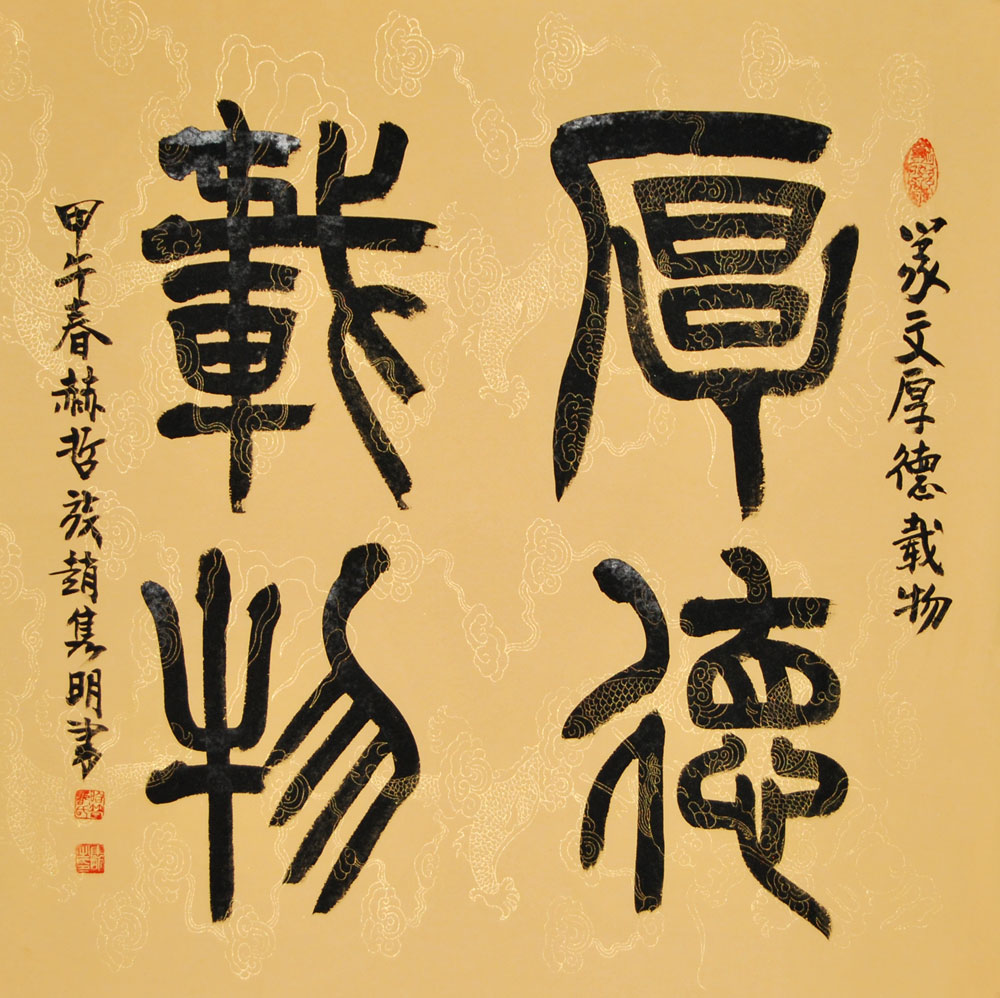 篆文厚德載物
厚德
載物
甲午春赫哲族趙隽明書